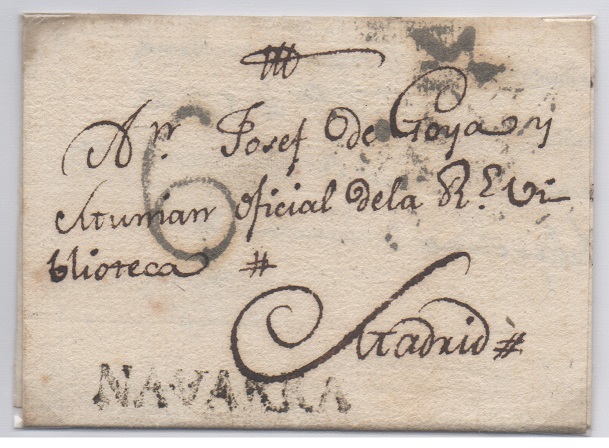 A Dn. Josef de Goya y
Munian oficial dela Rl. Vi-
blioteca #
6
Madrid #
NAVARRA